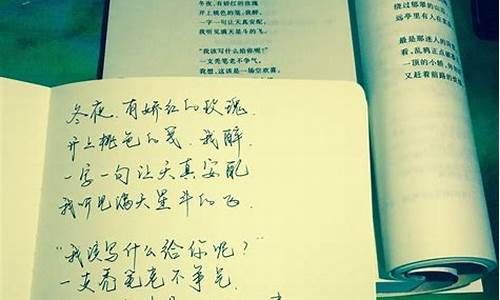 冬夜，有娇红的玫瑰
开上桃色的笺，我醉。
一字一句让天真安配，
我听见满天星斗的飞。
“我该写什么给你呢？”
一支秃笔老不争气。
我想，这该是一场空欢喜。
绕过郁翠的山
远亭里有人在
最是那迷人的
看，乱鸦正点
一顶的小轿，
又赶着前路的
冬夜，有娇红的玫瑰，
开上桃色的笺，我醉
一字一句让天真安配
我听见满天星斗的飞
“我该写什么给你呢？”
一支秃笔老不争气